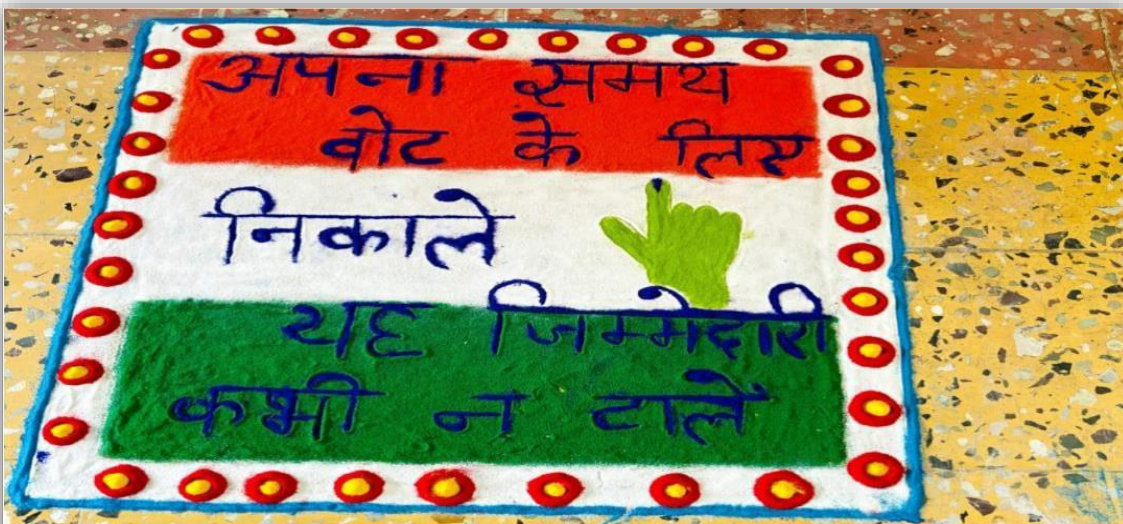 अपना समय
वोट के लिए
निकाले
यह जिम्मेदारी
कभी न टालें